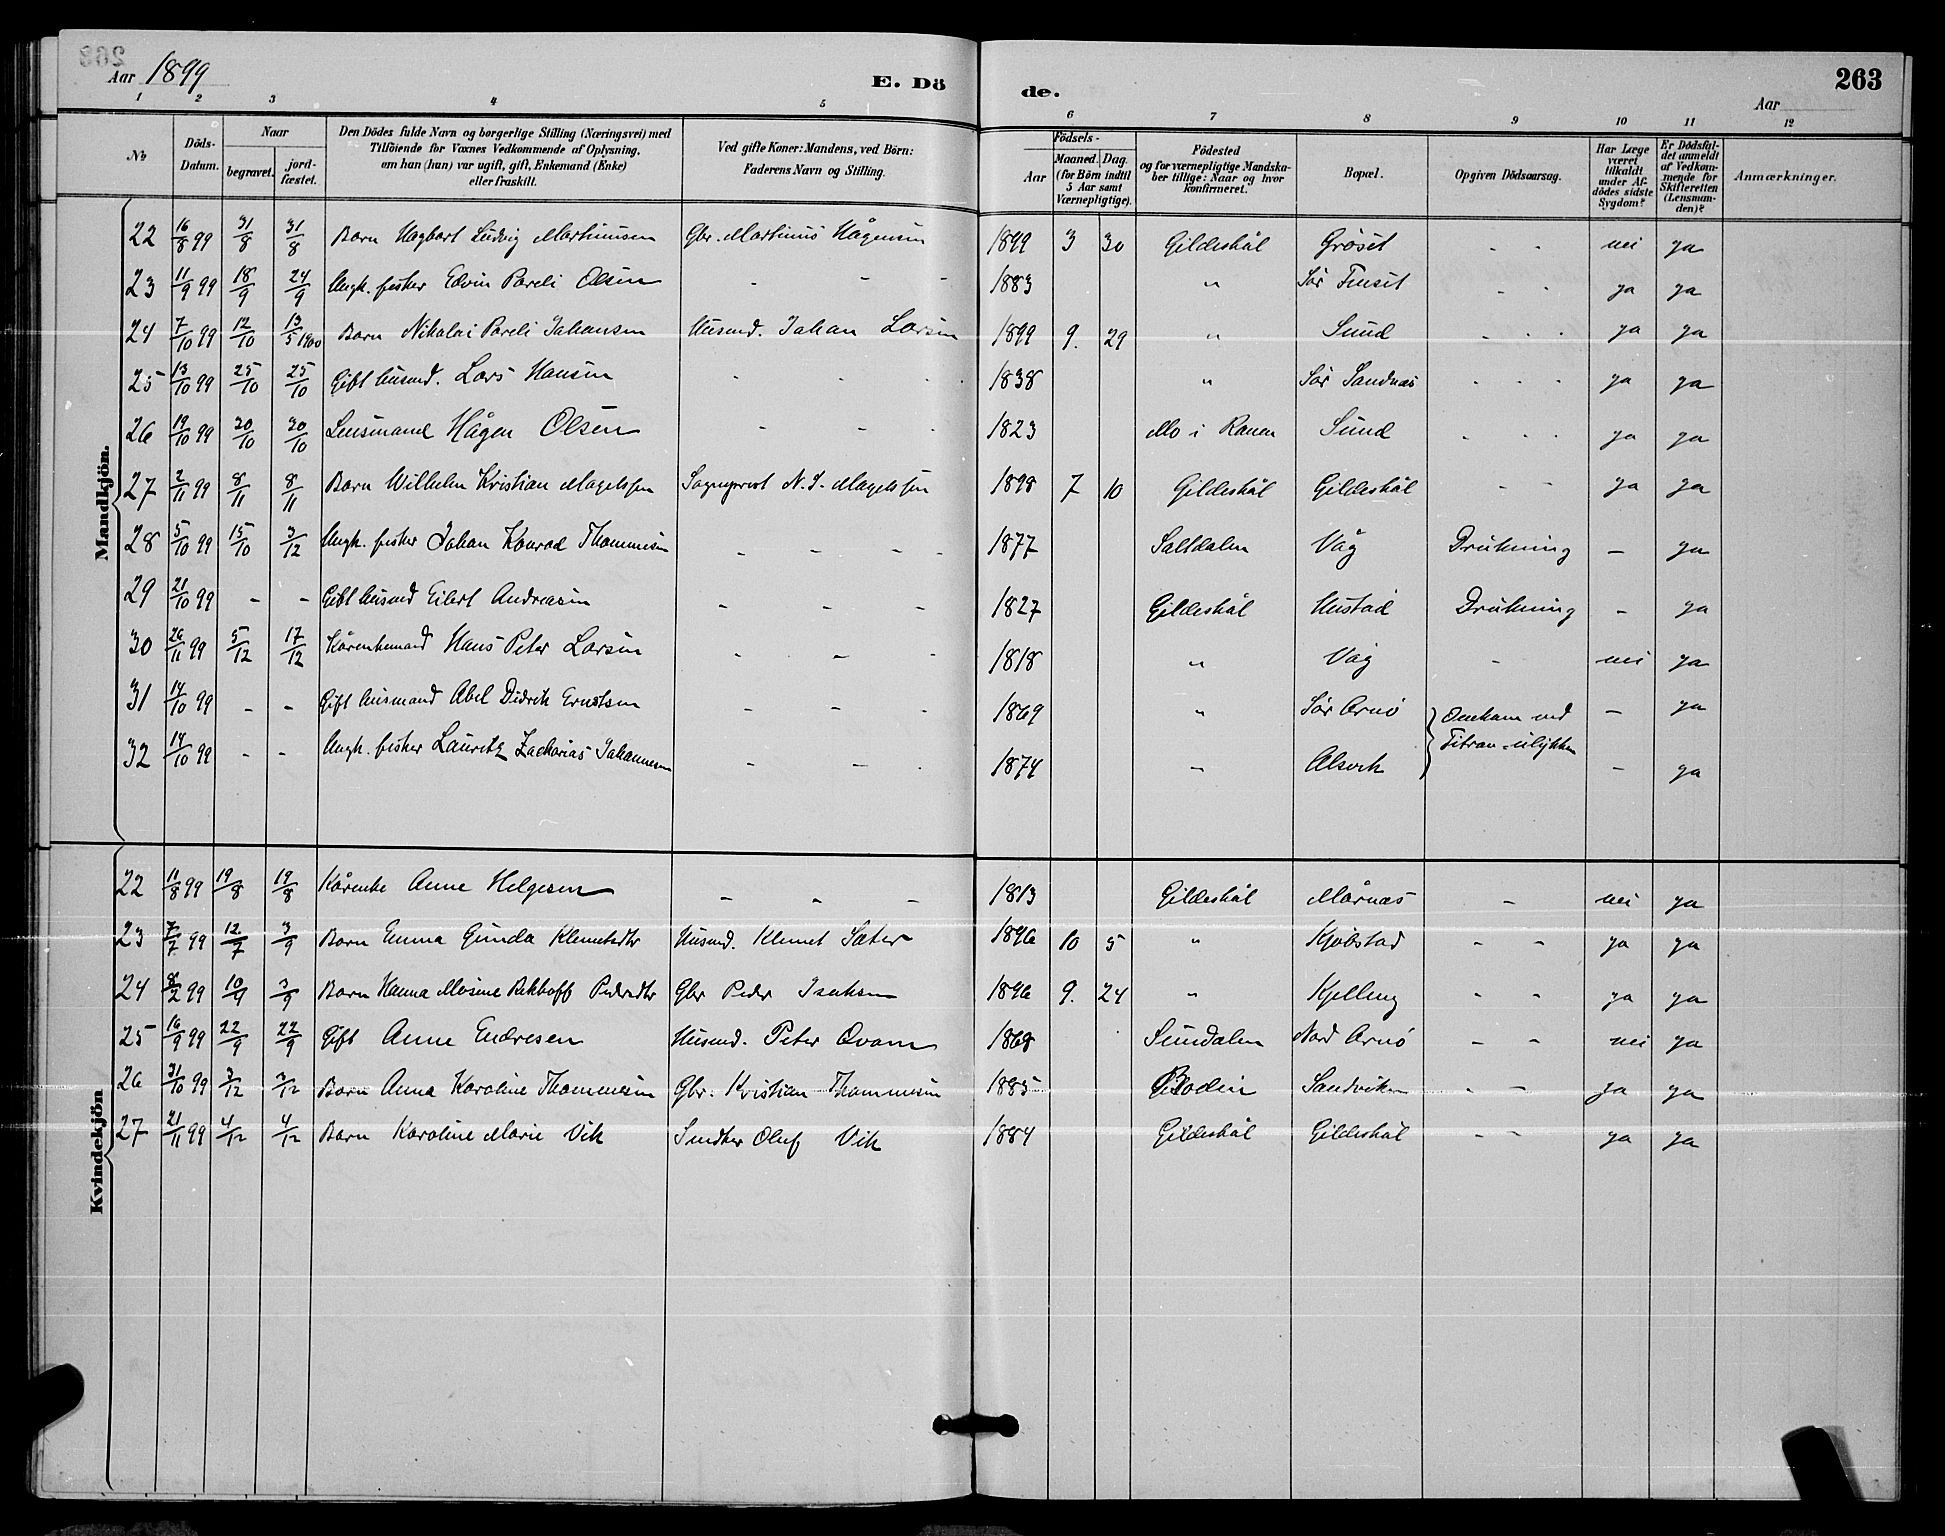 263
Aar 1899
E. Dö de.
263
Aar
1 2 3 4 5 6 7 8 9 10 11 12
No
Döds-Datum.
Naar
begravet.
jord-fæstet.
Den Dödes fulde Navn og borgerlige Stilling (Næringsvei) med
Tilföiende for Voxnes Vedkommende af Oplysning,
om han (hun) var ugift, gift, Enkemand (Enke)
eller fraskilt.
Ved gifte Koner: Mandens, ved Börn:
Faderens Navn og Stilling.
Födsels-
Aar
Maaned. Dag.
(for Börn indtil
5 Aar samt
Værnepligtige).
Födested
og for værnepligtige Mandska-
ber tillige: Naar og hvor
konfirmeret.
Bopæl.
Opgiven Dödsaarsag.
Har Læge
været
tilkaldt
under Af-
dödes sidste
Sygdom?
Er Dödsfal-
det anmeldt
af Vedkom-
mende for
Skifteretten
(Lensman-
den)?
Anmærkninger.
Mandkjön.
22 16/8 99 31/8 31/8 Barn Hagbart Ludvig Martinusen Gbr. Martinus Hågensen 1899 3 30 Gildeskål Grøset - - nei ja
23 11/9 99 18/9 24/9 Ungk. fisker Edvin Pareli Olsen - - - 1883 " Sør Finset - - ja ja
24 7/10 99 12/10 13/5 1900 Barn Nikolai Pareli Johansen Husmd. Johan Larsen 1899 9. 29 " Sund - - - ja ja
25 13/10 99 25/10 25/10 Gift husmd. Lars Hansen - - - 1838 " Sør Sandnæs - - - ja ja
26 19/10 99 30/10 30/10 Lensmand Hågen Olsen - - - 1823 Mo i Ranen Sund - - - ja ja
27 2/11 99 8/11 8/11 Barn Wilhelm Kristian Magelssen Sogneprest N. S. Magelssen 1898 7 10 Gildeskål Gildeskål - - ja ja
28 5/10 99 15/10 3/12 Ungk. fisker Johan Konrad Thommesen - - - - 1877 Saltdalen Våg Drukning - ja
29 21/10 99 - - Gift husmd Eilert Andreasen - - - 1827 Gildeskål Hustad Drukning - ja
30 26/11 99 5/12 17/12 Kårenkemand Hans Peter Larsen - - - 1818 " Våg - nei ja
31 14/10 99 - - Gift husmand Abel Didrik Ernstsen - - - 1869 " Sør Arnø Omkom ved - ja
32 14/10 99 - - Ungk. fisker Lauritz Zacharias Johannesen - - - 1874 " Alsvik Titran-ulykken - ja
Kvindekjön
22 11/8 99 19/8 19/8 Kårenke Anne Helgesen - - - 1813 Gildeskål Mårnæs - nei ja
23 7/7 99 12/7 3/9 Barn Emma Gunda Klemetsdtr Husmd. Klemet Sæter 1896 10 5 " Kjøbstad - - ja ja
24 8/2 99 10/9 3/9 Barn Hanna Mosine Rekhoff Pedersdtr Gbr Peder Isaksen 1896 9. 24 " Kjelling - - ja ja
25 16/9 99 22/9 22/9 Gift Anne Endresen Husmd. Peter Qvam 1868 Sundalen Nord Arnø - - nei ja
26 31/10 99 3/12 3/12 Barn Anna Karoline Thommesen Gbr. Kristian Thommesen 1885 Bodin Sandviken - - ja ja
27 21/11 99 4/12 4/12 Barn Karoline Marie Vik Snedker Oluf Vik 1884 Gildeskål Gildeskål - - ja ja